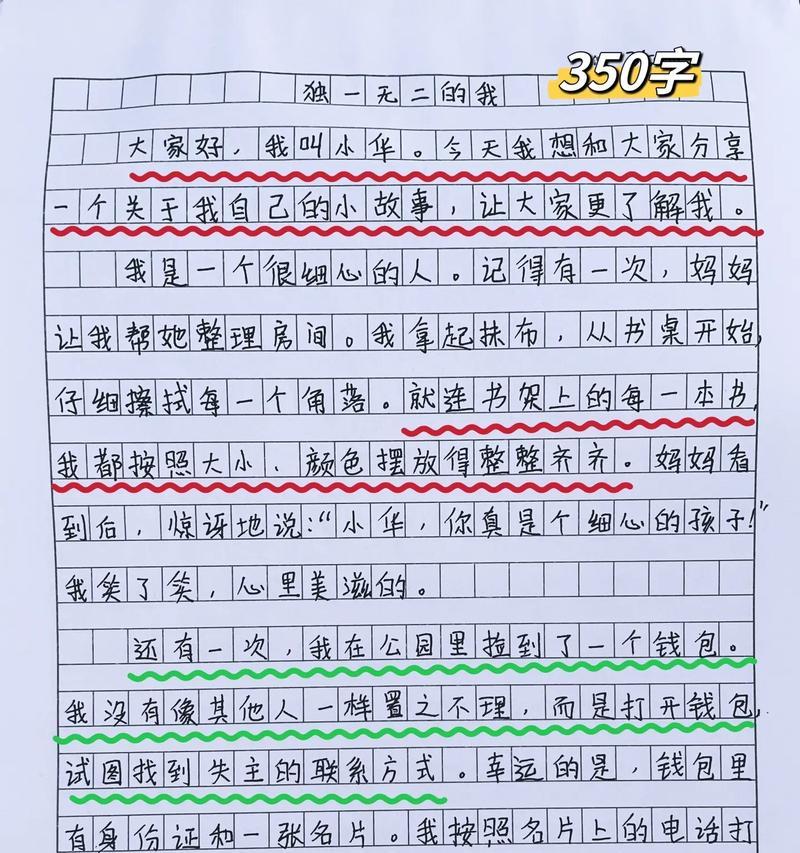 350字
独一无二的我
大家好，我叫小华。今天我想和大家分享
一个关于我自己的小故事，让大家更了解我。
我是一个很细心的人。记得有一次，妈妈
让我帮她整理房间。我拿起抹布，从书桌开始，
仔细擦拭每一个角落。就连书架上的每一本书，
我都按照大小、颜色摆放得整整齐齐。妈妈看
到后，惊讶地说：“小华，你真是个细心的孩子！”
我笑了笑，心里美滋滋的。
还有一次，我在公园里捡到了一个钱包。
我没有像其他人一样置之不理，而是打开钱包，
试图找到失主的联系方式。幸运的是，钱包里
有身份证和一张名片。我按照名片上的电话打